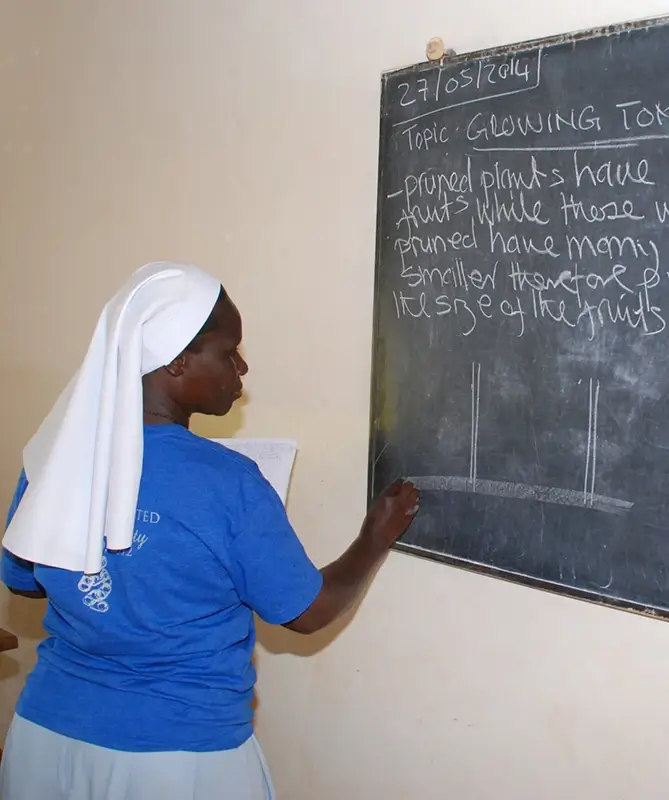 27/05/2014
Topic: GROWING TOM
- pruned plants have
fruits while those w
pruned have many
smaller therefore p
the size of the fruits
TED